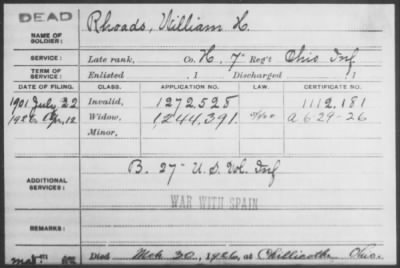 DEAD
NAME OF SOLDIER: Rhoads, William H.
SERVICE: Late rank, Co. H, 7" Reg't Ohio Inf
TERM OF SERVICE: Enlisted , 1 Discharged , 1
DATE OF FILING. CLASS. APPLICATION NO. LAW. CERTIFICATE NO.
1901 July 22 Invalid, 1272,525 1112,181
1926 Apr, 12 Widow, 1,244,391 a 629-26
Minor,
ADDITIONAL SERVICES: B. 27" U.S. Vol. Inf
WAR WITH SPAIN
REMARKS:
Died Mch 30, 1926, at Chillicothe Ohio.